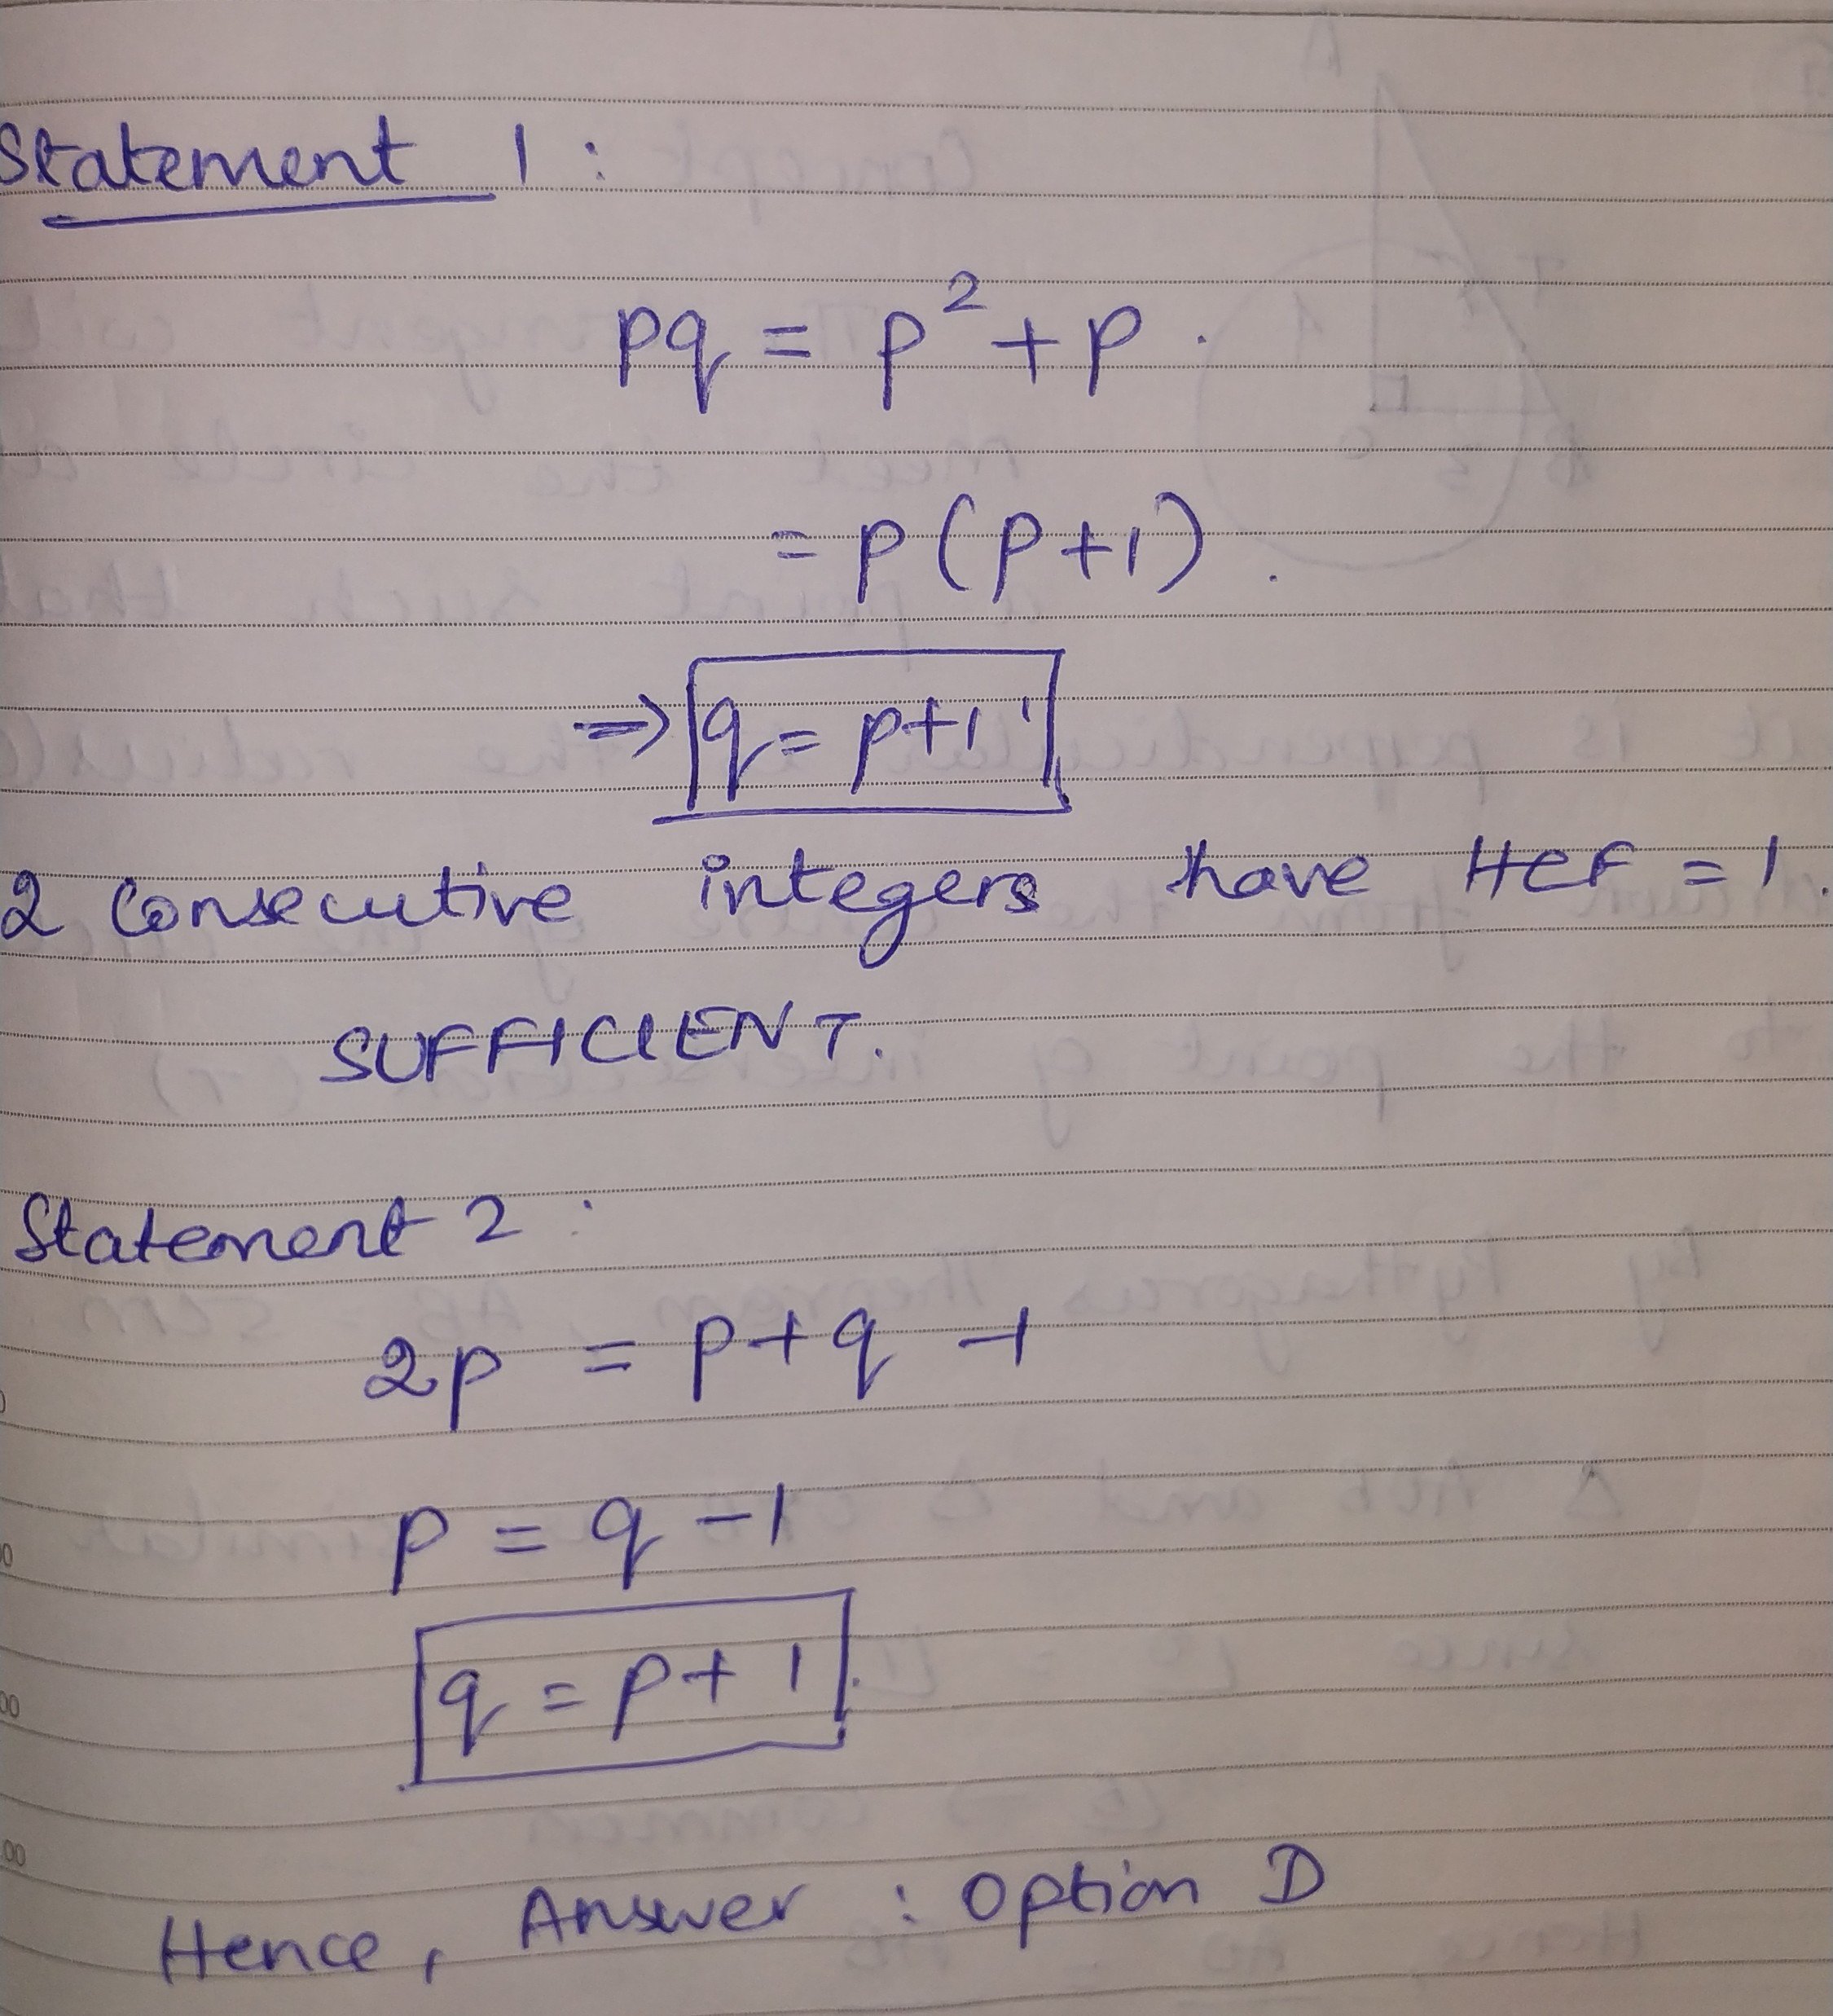 Statement 1 :
pq = p² + p .
= p (p+1) .
⇒ q = p+1
2 consecutive integers have HCF = 1.
SUFFICIENT.
Statement 2 :
2p = p + q - 1
p = q - 1
q = p + 1
Hence, Answer : Option D